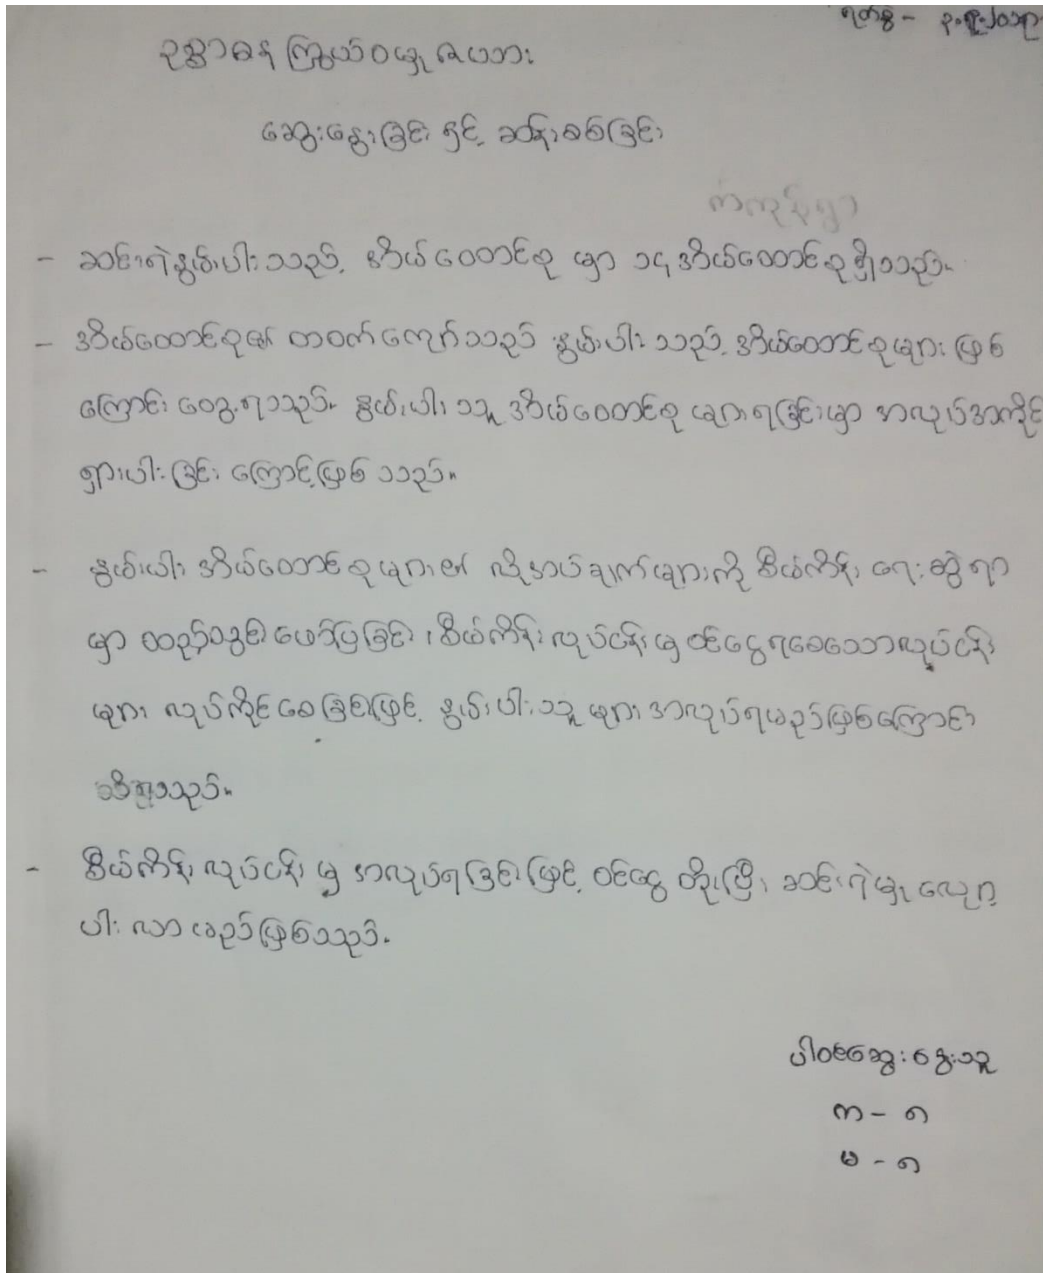 ရက်စွဲ -
ဥစ္စာဓန ကြွယ်ဝမှု ဇယား
ဆွေးနွေးခြင်း နှင့် ဆန်းစစ်ခြင်း
ကံကုန်းရွာ
- ဆင်းရဲနွမ်းပါးသည့် အိမ်ထောင်စု မှာ ၁၄ အိမ်ထောင်စု ရှိသည်။
- အိမ်ထောင်စု၏ တဝက်ကျော်သည် နွမ်းပါးသည့် အိမ်ထောင်စုများ ဖြစ်
ကြောင်း တွေ့ရသည်။ နွမ်းပါးသူ အိမ်ထောင်စု များရခြင်းမှာ အလုပ်အကိုင်
ရှားပါးခြင်းကြောင့်ဖြစ်သည်။
- နွမ်းပါး အိမ်ထောင်စုများ၏ လိုအပ်ချက်များကို စီမံကိန်း ရေးဆွဲရာ
မှာ ထည့်သွင်းဖော်ပြခြင်း ၊ စီမံကိန်းလုပ်ငန်းမှ ဝင်ငွေရစေသောလုပ်ငန်း
များ လုပ်ကိုင်စေခြင်းဖြင့် နွမ်းပါးသူများ အလုပ်ရမည်ဖြစ်ကြောင်း
သိရှိရသည်။
- စီမံကိန်းလုပ်ငန်းမှ အလုပ်ရခြင်းဖြင့် ဝင်ငွေ တိုးပြီး ဆင်းရဲမှု လျော့
ပါးလာမည်ဖြစ်သည်။
ပါဝင်ဆွေးနွေးသူ
က - ၈
မ - ၈